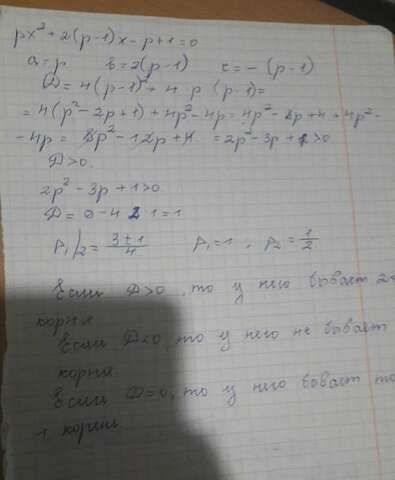 px² + 2(p-1)x - p + 1 = 0
a = p b = 2(p-1) c = -(p-1)
D = 4(p-1)² + 4 p (p-1) =
= 4(p² - 2p + 1) + 4p² - 4p = 4p² - 8p + 4 + 4p² -
- 4p = 8p² - 12p + 4 = 2p² - 3p + 1 > 0
D > 0.
2p² - 3p + 1 > 0
D = 9 - 4 2 1 = 1
p₁/₂ = (3 ± 1)/4 p₁ = 1, p₂ = 1/2
Если D > 0, то у него бывает 2
корня
Если D < 0, то у него не бывает
корня.
Если D = 0, то у него бывает
1 корень